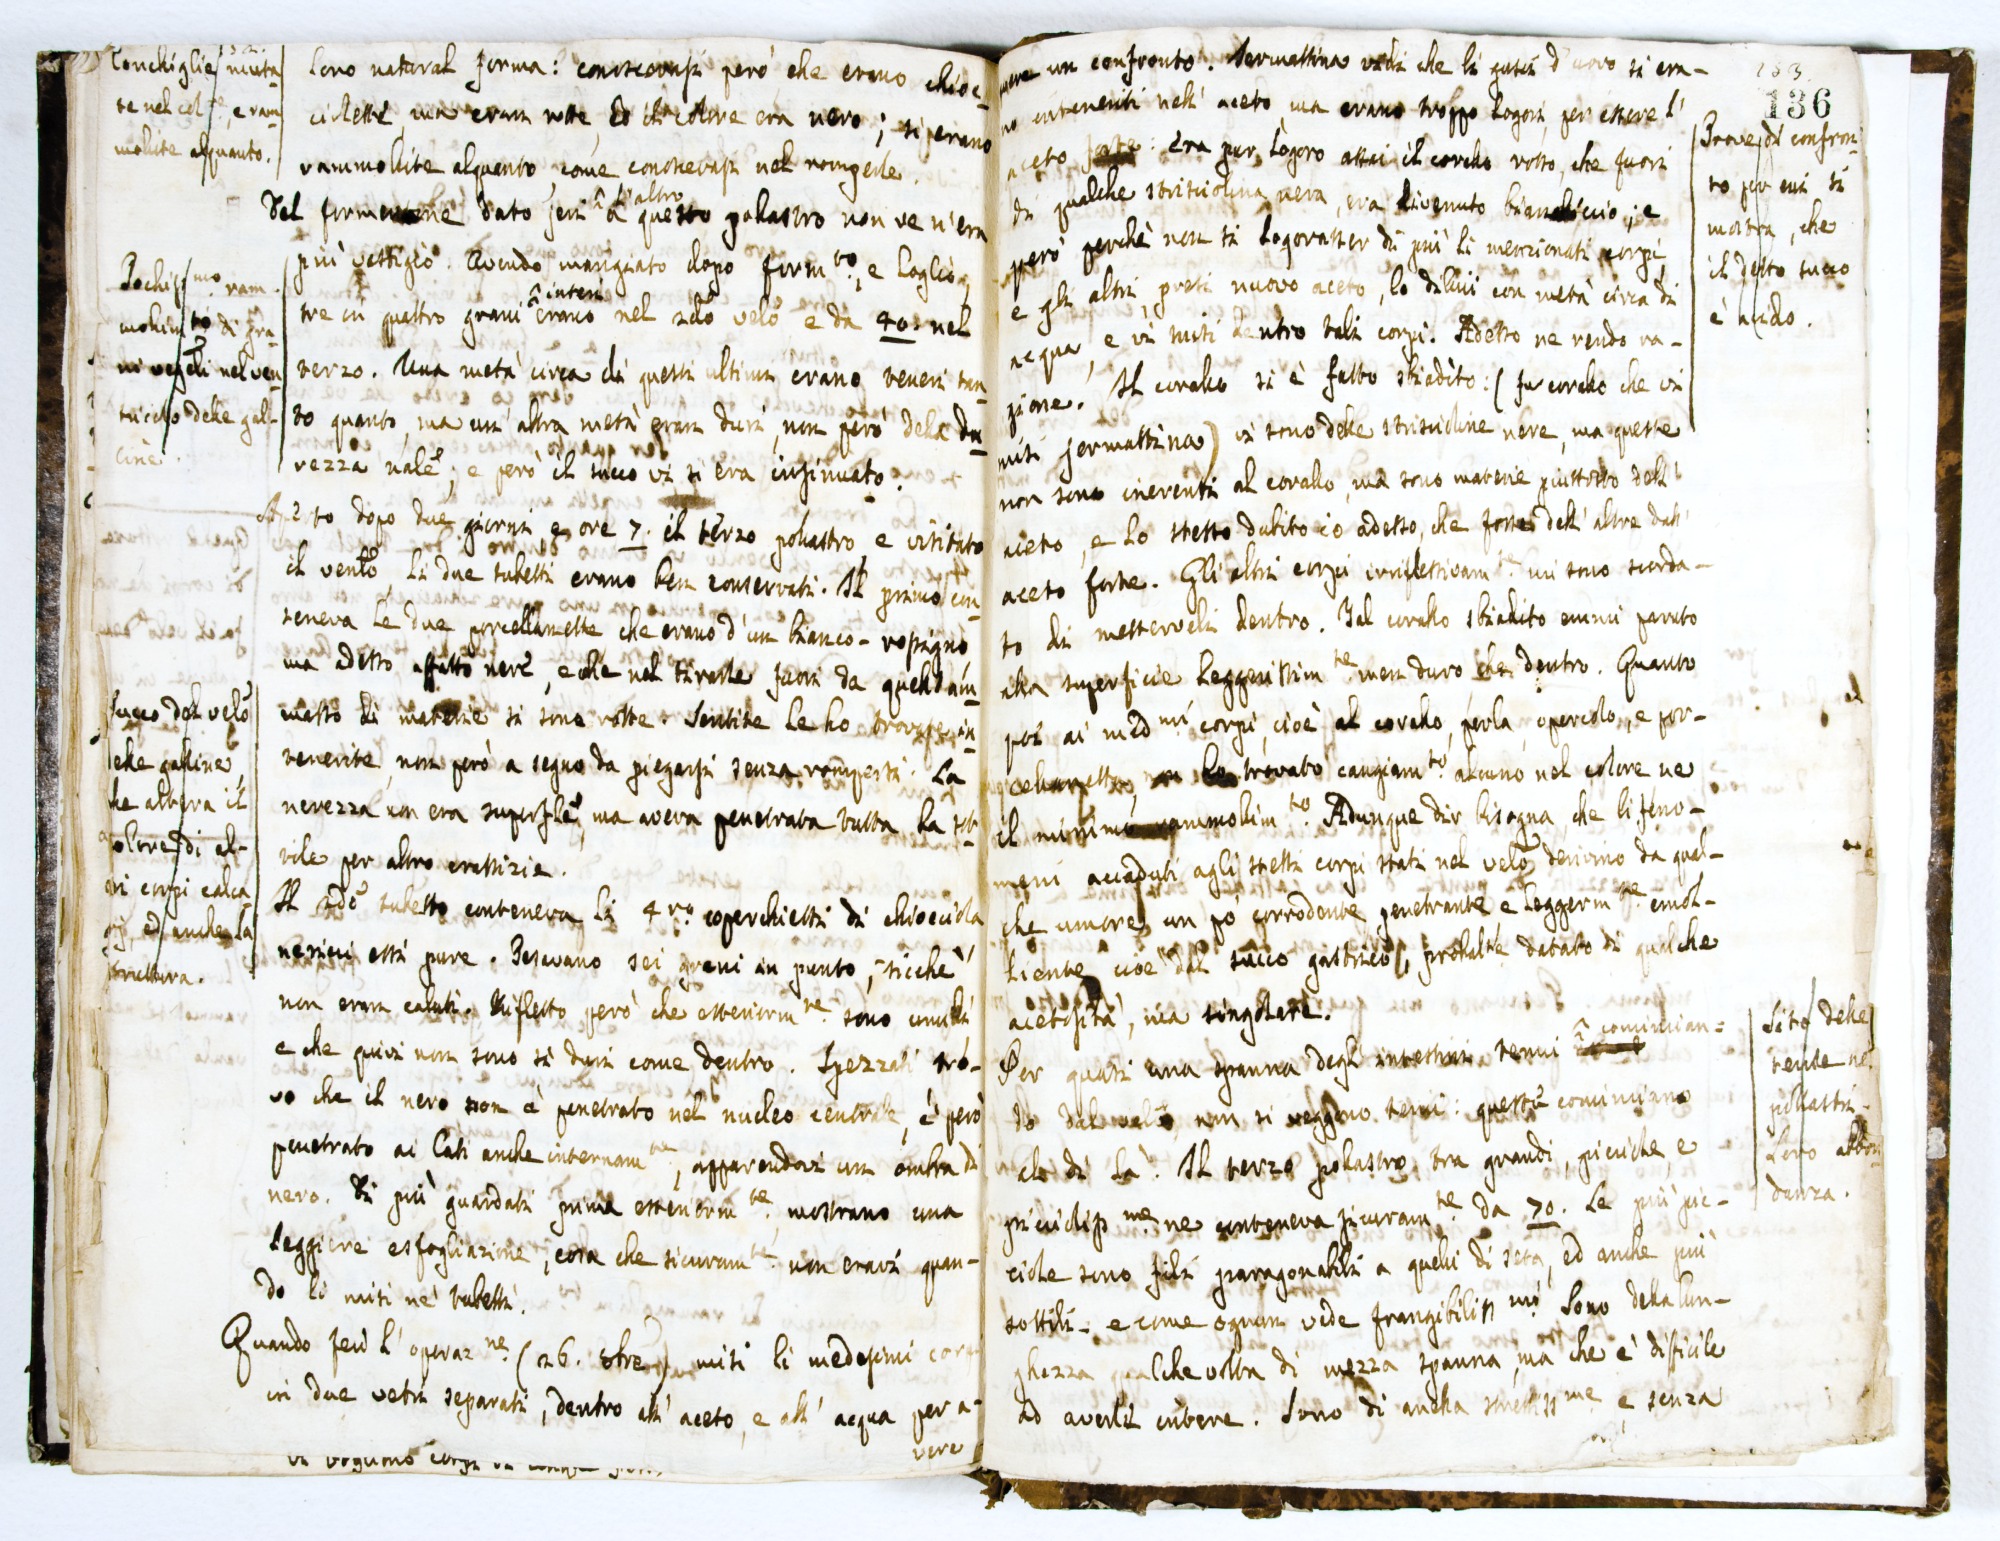 Conchiglie muta-
te nel col.re, e ram-
mollite alquanto.
loro natural forma: conoscevasi però che erano chioc-
ciolette, ma eran rotte, ed il colore era nero; si erano
rammollite alquanto, come conoscevasi nel romperle.
Del formentone dato jeri l'altro a questo pollastro non ve n'era
più vestigio. Avendo mangiato dopo form.to, e loglio,
tre in quattro grani interi erano nel velo e da 40. nel
terzo. Una metà circa di questi ultimi erano teneri tan-
to quanto, ma un' altra metà eran duri, non però della du-
rezza nale; e però il succo vi si era insinuato.
Pochiss.mo ram-
mollim.to di gra-
ni vegeli nel ven-
triccolo delle gal-
line.
Aperto dopo due giorni e ore 7. il terzo pollastro, e visitato
il venlo, li due tubetti erano ben conservati. Il primo con-
teneva le due porcellanette che erano d'un bianco-rossigno
ma adesso affatto nere, e che nel tirarle fuori da quell'am-
masso di materie si sono rotte. Sentite le ho trovate in-
tenerite, non però a segno da piegarsi senza rompersi. La
nerezza non era superfle, ma aveva penetrata tutta la sot-
tile per altro crassizie.
Succo del velo
delle galline,
che altera il
colore di al-
tri corpi calca-
rj, ed anche la
struttura.
Il 2do tubetto conteneva li 4ro coperchietti di chiocciola
nericci essi pure. Pesavano sei grani in punto, sicchè
non eran calati. Rifletto però che esteriorm.te sono umidi
e che quivi non sono sì duri come dentro. Spezzati tro-
vo che il nero non è penetrato nel nucleo centrale, è però
penetrato ai lati anche internam.te, apparendovi un ombra di
nero. Di più guardati prima esteriorm.te mostrano una
leggiere esfogliazione, cosa che sicuram.te non eravi quan-
do li misi ne' tubetti.
Quando feci l'operaz.ne (26. 8bre) misi li medesimi corpi
in due vetri separati, dentro all' aceto, e all' acqua per a-
vere
136
vere un confronto. Jermattina vidi che li gusci d'uovo si era-
no inteneriti nell' aceto, ma erano troppo logori, per essere l'
aceto forte. Era pur logoro assai il corallo rosso, che fuori
di qualche strisciolina nera, era divenuto bianchiccio; e
però perchè non si logorasser di più li menzionati corpi,
e gli altri, presi nuovo aceto, lo diluii con metà circa di
acqua, e vi misi dentro tali corpi. Adesso ne rendo ra-
gione. Il corallo si è fatto sbiadito: (sul corallo che vi
misi jermattina) vi sono delle strisciuline nere, ma queste
non sono inerenti al corallo, ma sono materie piuttosto dell'
aceto, e lo stesso dubito io adesso, che fosse dell' altre dall'
aceto forte. Gli altri corpi irriflessivam.te mi sono scorda-
to di mettervoli dentro. Tal corallo sbiadito emmi paruto
alla superficie leggerissim.te men duro che dentro. Quanto
poi ai med.mi corpi, cioè al corallo, perla, opercolo, e por-
cellanetta, non ho trovato cangiam.to alcuno nel colore ne
il minimo rammollim.to. Adunque dir bisogna, che li feno-
meni accaduti agli stessi corpi stati nel velo derivino da qual-
che umore un pò corrodente, penetrante e leggerm.te emol-
liente, cioè dal succo gastrico, probalte dotato di qualche
acetosità, ma singolare.
Prove di confron-
to per cui si
mostra, che
il detto succo
è acido.
Per quasi una spanna degli intestini tenui comincian-
do dal velo non si veggono tenie: queste cominciano
al di là. Il terzo pollastro, tra grandi, piccole, e
picciolis.me ne conteneva sicuram.te da 70. Le più pic-
ciole sono fili paragonabili a quelli di seta, ed anche più
sottili - e come ognun vede frangibiliss.mi. Sono della lun-
ghezza qualche volta di mezza spanna, ma che è difficile
ad averli intere. Sono di anella strettiss.me e senza
Sito delle
tenie ne'
pollastri.
Loro abbon-
danza.